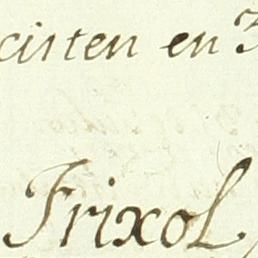 cisten en
Frixol